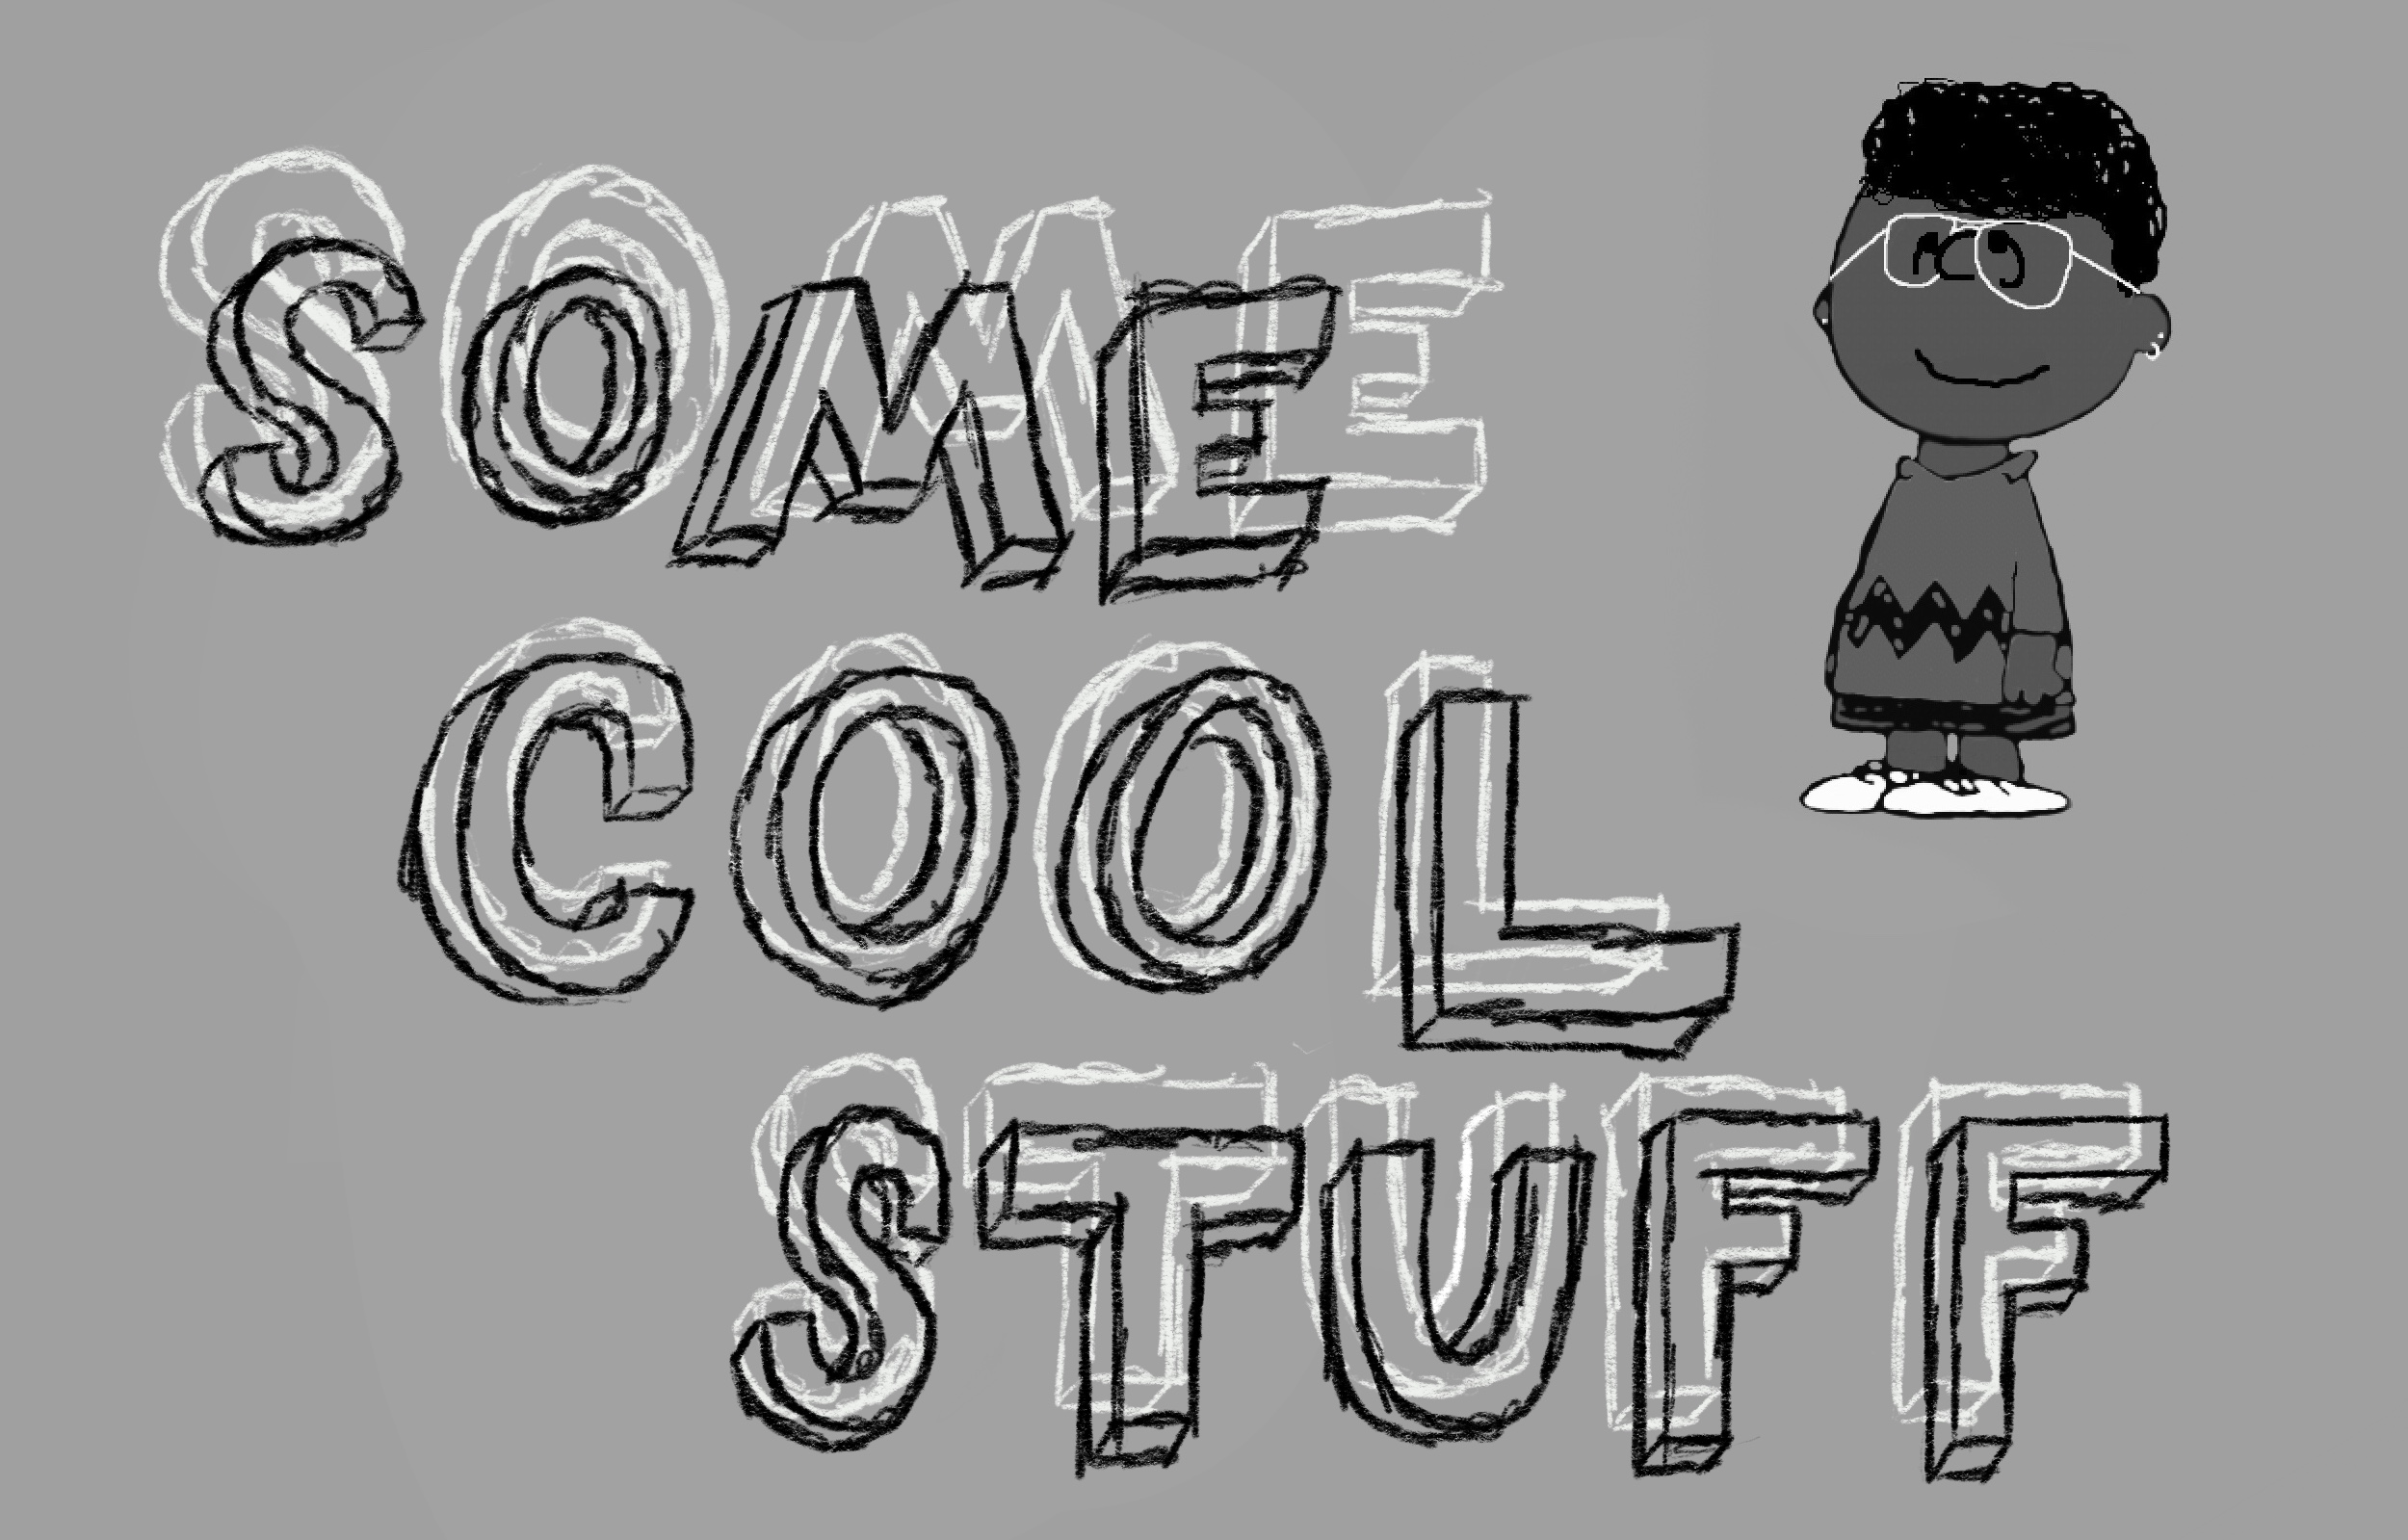 SOME
COOL
STUFF